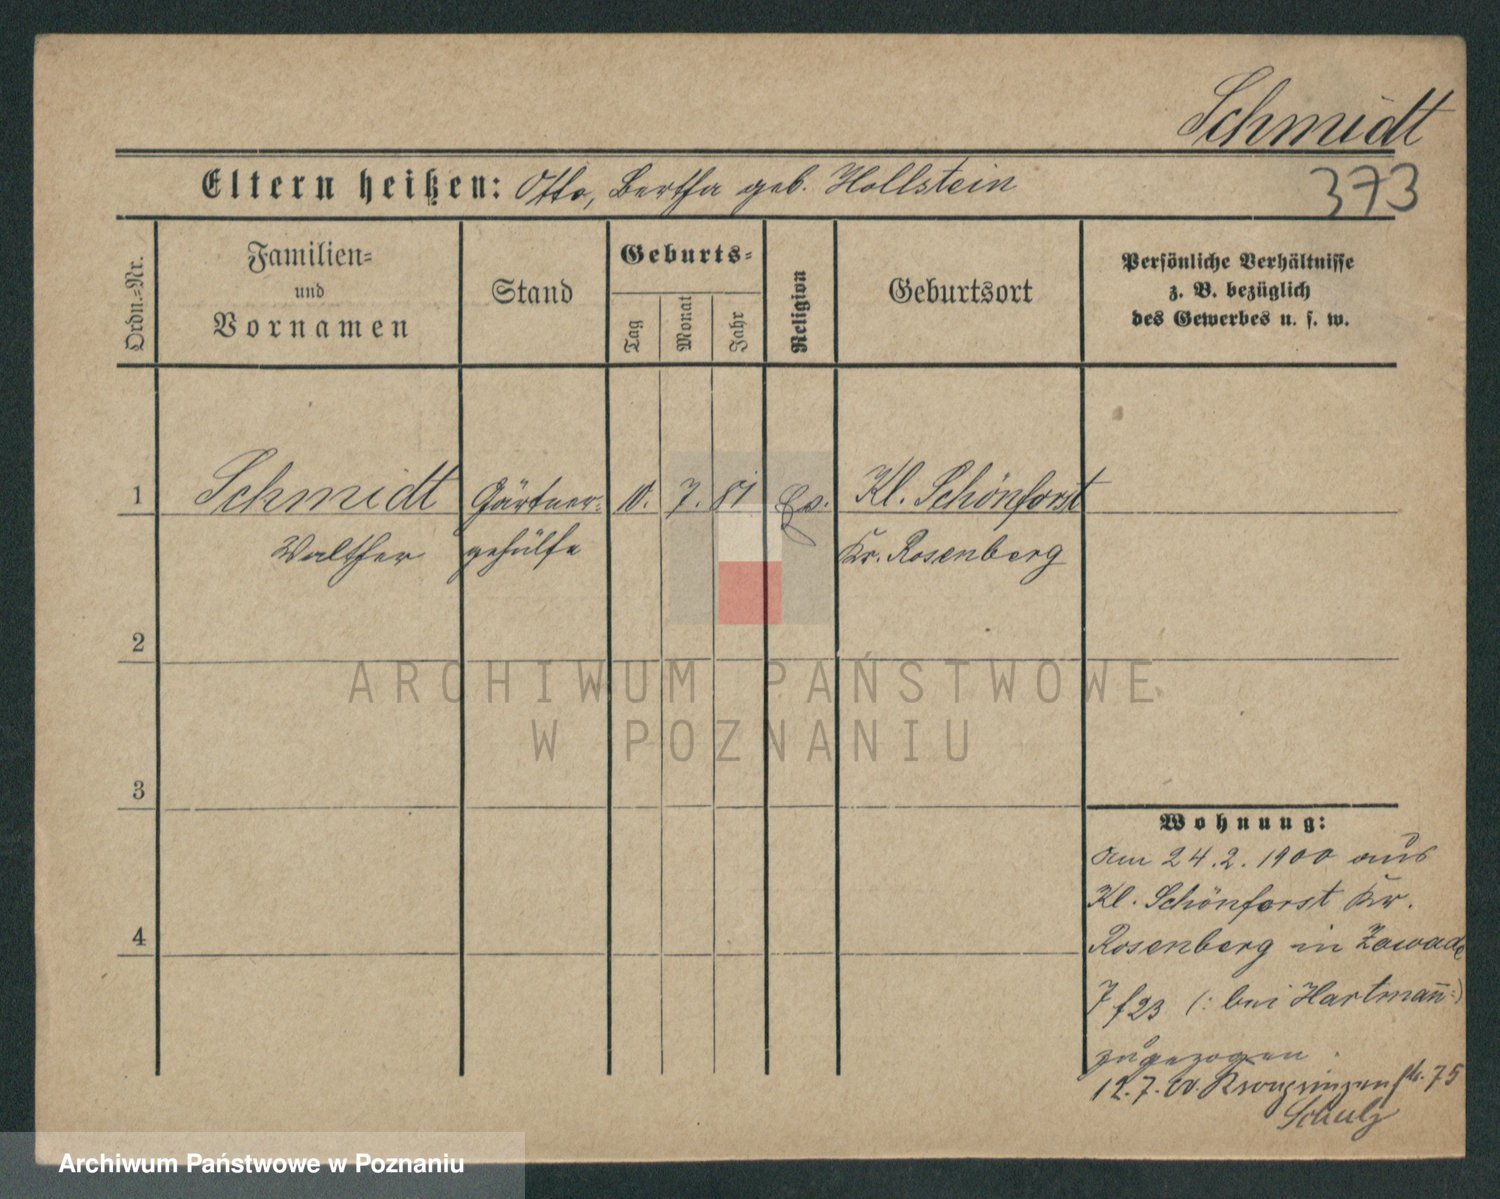 Schmidt
373
Eltern heißen: Otto, Bertha geb. Hollstein
Ordn.-Nr.
Familien-
und
Vornamen
Stand
Geburts-
Tag
Monat
Jahr
Religion
Geburtsort
Persönliche Verhältnisse
z. B. bezüglich
des Gewerbes u. s. w.
1 Schmidt Gärtner- 10. 7. 81 Ev. Kl. Schönforst
Walther gehülfe Kr. Rosenberg
2
3
4
ARCHIWUM PAŃSTWOWE
W POZNANIU
Wohnung:
Am 24.2.1900 aus
Kl. Schönforst Kr.
Rosenberg in Zawade
(: bei Hartmañ :)
zugezogen.
12.7.00. Kronprinzenstr. 75
Schulz
Archiwum Państwowe w Poznaniu